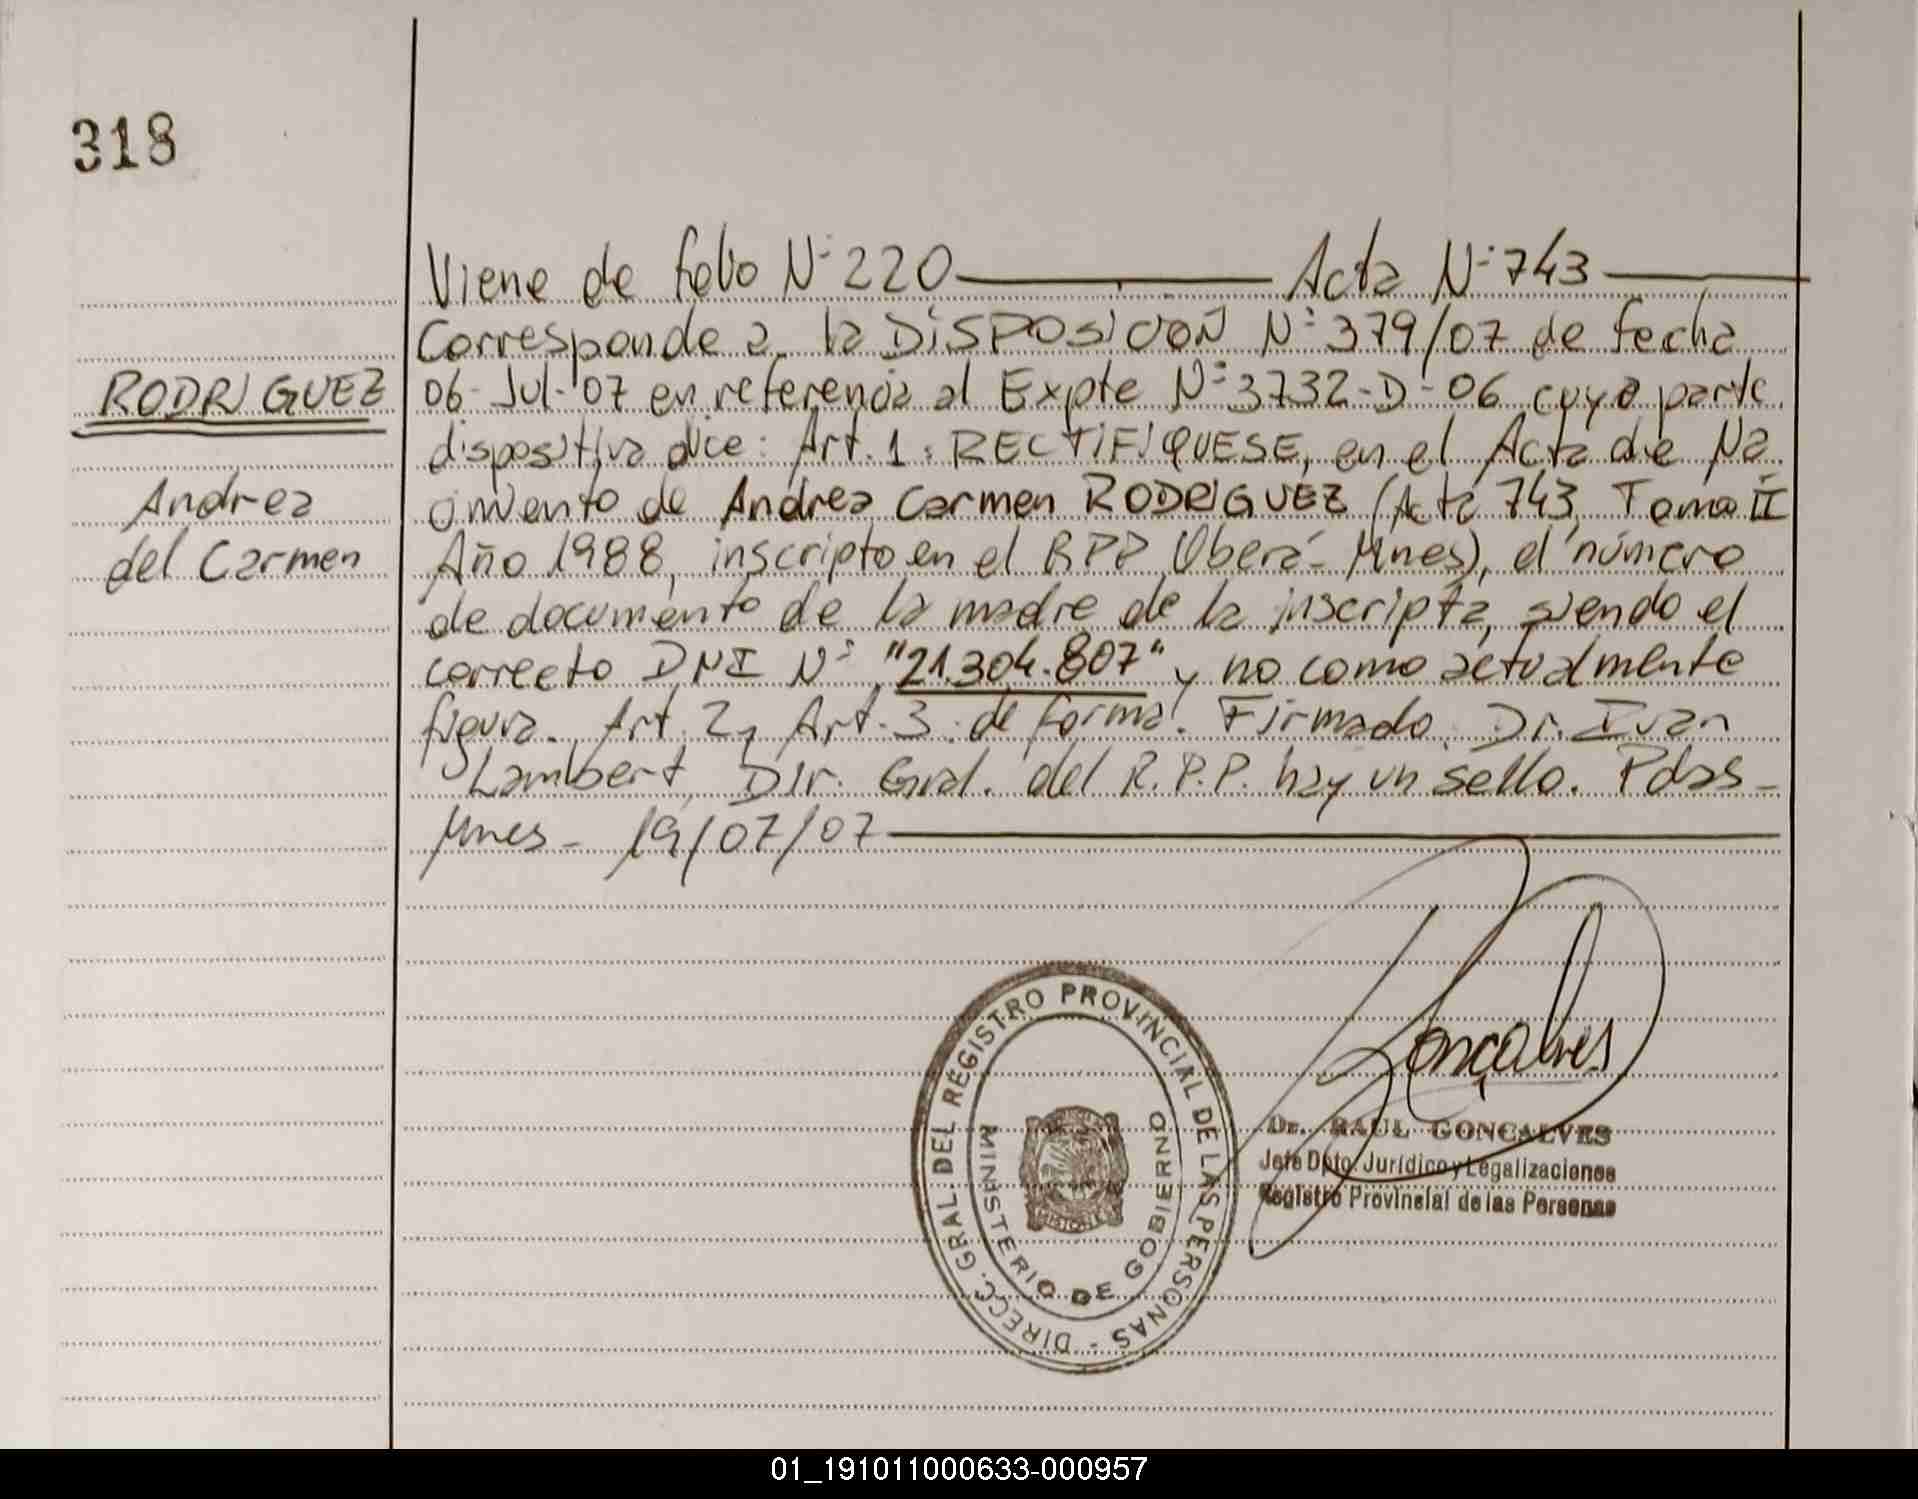 318
Viene de folio Nº 220 Acta Nº 743
Corresponde a la DISPOSICION Nº 379/07 de fecha
RODRIGUEZ
06-Jul-07 en referencia al Expte Nº 3732-D-06 cuya parte
dispositiva dice: Art. 1: RECTIFIQUESE, en el Acta de Na
Andrea
cimiento de Andrea Carmen RODRIGUEZ (Acta 743, Tomo II
del Carmen
Año 1988, inscripto en el RPP Oberá-Mnes), el número
de documento de la madre de la inscripta, siendo el
correcto DNI Nº "21.304.807" y no como actualmente
figura. Art. 2, Art. 3. de forma. Firmado. Dr. Ivan
Lambert, Dir. Gral. del R.P.P. hay un sello. Pdas-
Mnes- 19/07/07
Gonçalves
DIRECC. GRAL. DEL REGISTRO PROVINCIAL DE LAS PERSONAS -
MINISTERIO DE GOBIERNO
MISIONES
Dr. RAUL GONCALVES
Jefe Dpto. Jurídico y Legalizaciones
Registro Provincial de las Personas
01_191011000633-000957